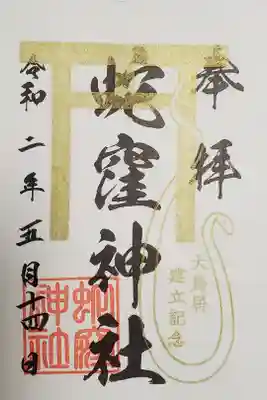 奉拝
大鳥居
建立記念
蛇窪神社
蛇窪
神社
令和二年五月十四日